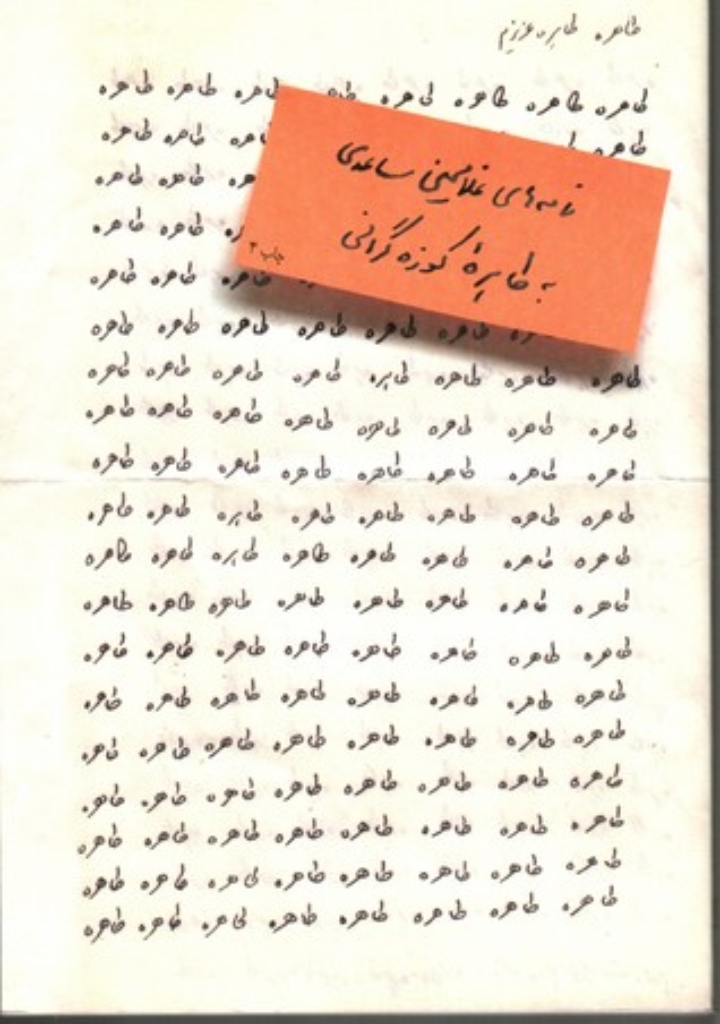 طاهره، طاهره عزیزم
طاهره طاهره طاهره طاهره طاهره طاهره طاهره طاهره
طاهره طاهره طاهره
طاهره طاهره
طاهره طاهره
طاهره طاهره طاهره
طاهره طاهره طاهره طاهره طاهره طاهره
طاهره طاهره طاهره طاهره طاهره طاهره طاهره طاهره
طاهره طاهره طاهره طاهره طاهره طاهره طاهره طاهره
طاهره طاهره طاهره طاهره طاهره طاهره طاهره طاهره
طاهره طاهره طاهره طاهره طاهره طاهره طاهره طاهره
طاهره طاهره طاهره طاهره طاهره طاهره طاهره طاهره
طاهره طاهره طاهره طاهره طاهره طاهره طاهره طاهره
طاهره طاهره طاهره طاهره طاهره طاهره طاهره طاهره
طاهره طاهره طاهره طاهره طاهره طاهره طاهره طاهره
طاهره طاهره طاهره طاهره طاهره طاهره طاهره طاهره
طاهره طاهره طاهره طاهره طاهره طاهره طاهره طاهره
طاهره طاهره طاهره طاهره طاهره طاهره طاهره طاهره
طاهره طاهره طاهره طاهره طاهره طاهره طاهره طاهره
طاهره طاهره طاهره طاهره طاهره طاهره طاهره طاهره
نامه‌های غلامحسین ساعدی
به طاهرهٔ کوزه‌گرانی
چاپ